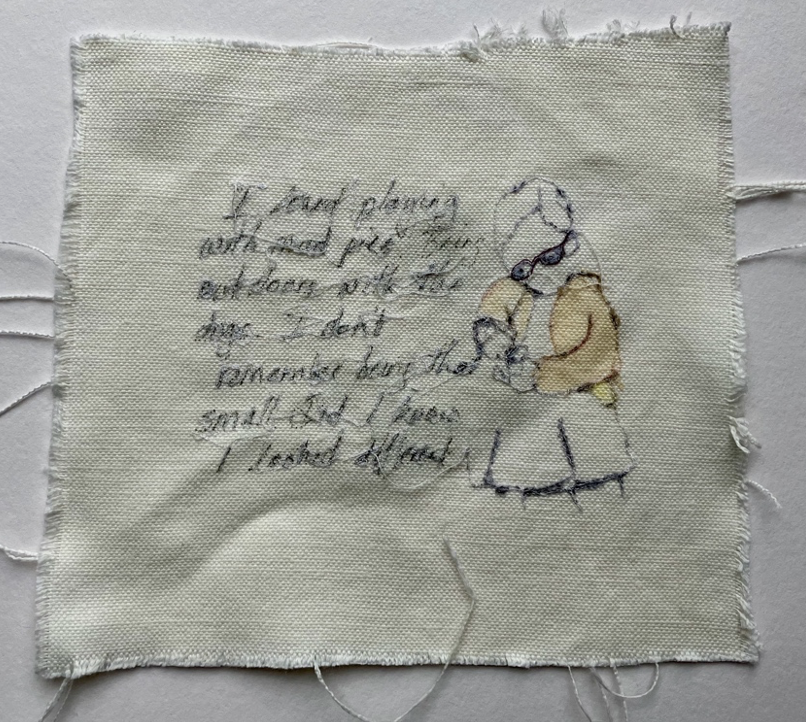 I loved playing
with mud pies being
outdoors with the
dogs. I don't
remember being that
small Did I know
I looked different